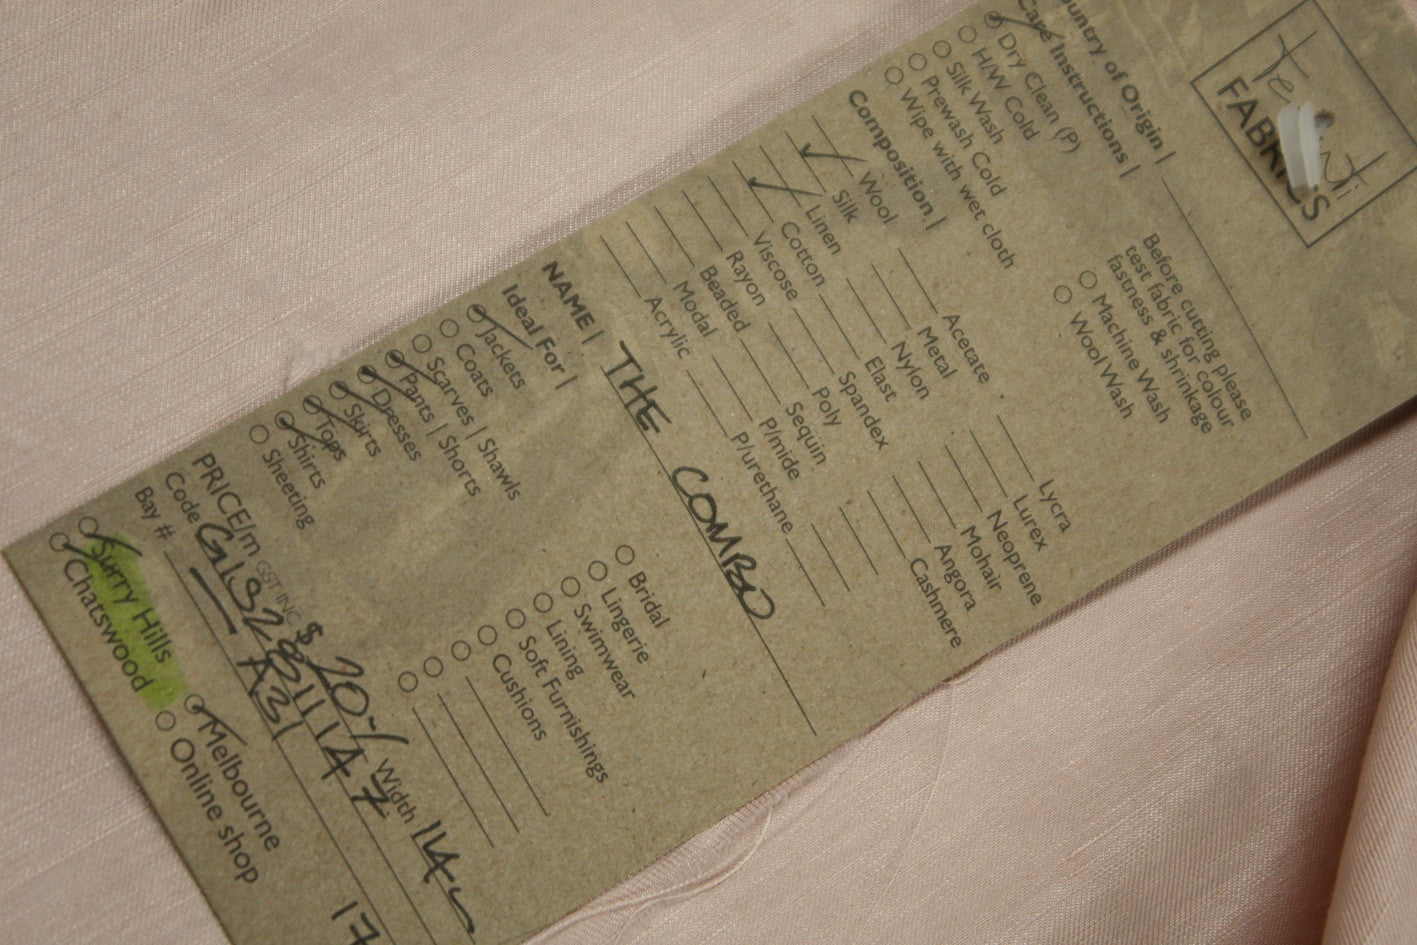 FABRICS
Country of Origin |
Care Instructions |
Dry Clean (P)
H/W Cold
Silk Wash
Prewash Cold
Wipe with wet cloth
Before cutting please
test fabric for colour
fastness & shrinkage
Machine Wash
Wool Wash
Composition |
Wool
Silk
Linen
Cotton
Viscose
Rayon
Beaded
Modal
Acrylic
Acetate
Metal
Nylon
Elast
Spandex
Poly
Sequin
P/mide
P/urethane
Lycra
Lurex
Neoprene
Mohair
Angora
Cashmere
NAME | THE COMBO
Ideal For |
Jackets
Coats
Scarves | Shawls
Pants | Shorts
Dresses
Skirts
Tops
Shirts
Sheeting
Bridal
Lingerie
Swimwear
Lining
Soft Furnishings
Cushions
PRICE/m GST INC $20 Width 114
Code
Bay # A31
Surry Hills
Chatswood
Melbourne
Online shop
17